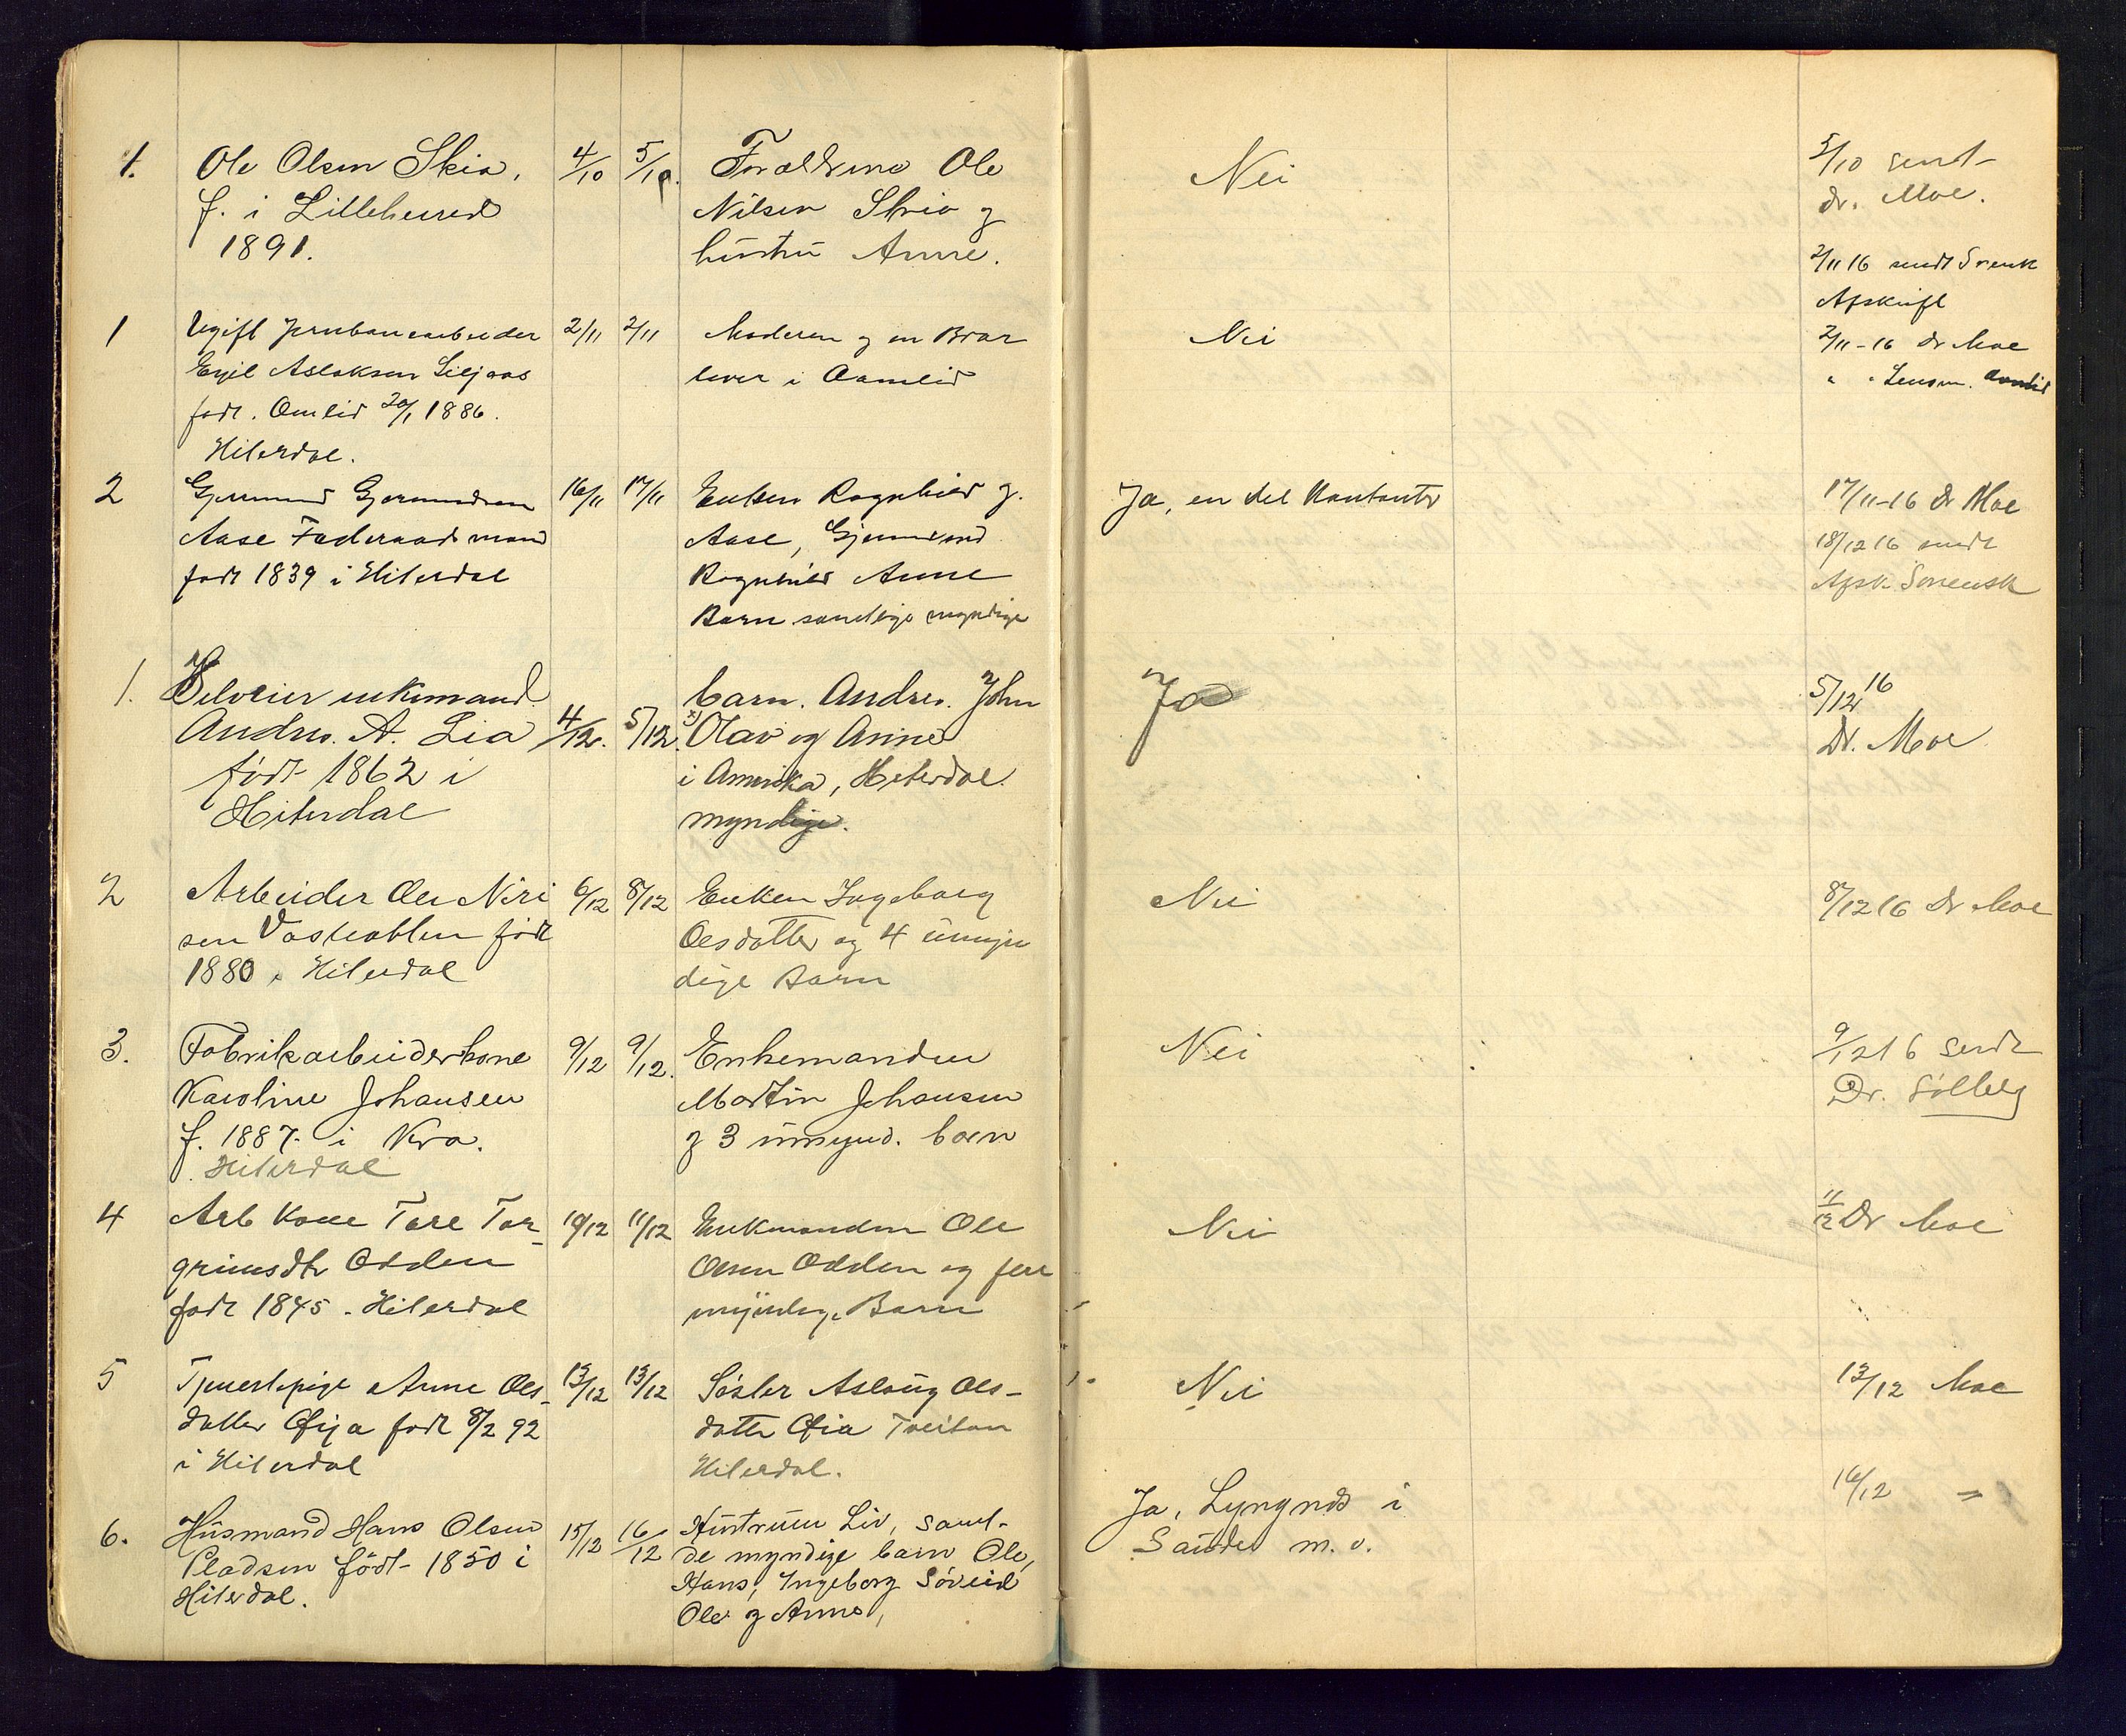 1. Ole Olsen Skia, 4/10 5/10. Forældrene Ole Nei 5/10 sendt
f. i Lilleherred Nilsen Skia og dr. Moe.
1891. hustru Anne.
2/11 16 sendt Svensk
Afskrift
1 Ugift Jernbanearbeider 2/11 2/11 Moderen og en Bror Nei 2/11-16 Dr Moe
Egil Aslaksen Liljaas lever i Aamlid " " Lensm. Aamlid
født. Omlid 20/1 1886.
Hiterdal.
2 Gjermund Gjermundsen 16/11 17/11 Enken Ragnhild g. Ja, en del Kontanter 17/11-16 Dr Moe
Aase Føderaadsmand Aase, Gjermund 18/12 16 sendt
født 1839 i Hiterdal Ragnhild Anne Afsk.
Barn samtlige myndige
1. Selveier enkemand barn. Andres. John Ja 5/12 16
Andres. A. Lia 4/12. 5/12. x) Olav og Anne Dr. Moe
født 1862 i i Amerika, Hiterdal.
Hiterdal myndige.
2 Arbeider Ole Niri 6/12 8/12 Enken Ingeborg Nei 8/12 16 Dr Moe
sen født Olsdatter og 4 umyn
1880 i Hiterdal dige Barn
3. Fabrikarbeiderkone 9/12 9/12. Enkemanden Nei 9/12 16 sendt
Karoline Johansen Martin Johansen Dr. Solberg
f. 1887. i Kra. og 3 umynd. barn
Hiterdal
4 Arb Kone Tore Tor- 10/12 11/12 Enkemanden Ole Nei 11/12 Dr Moe
grimsdtr Odden Olsen Odden og fire
født 1845. Hiterdal myndige Barn
5 Tjenestepige Anne Ols- 13/12 13/12 Søster Aslaug Ols- Nei 13/12 Moe
datter Øija født 8/2 92 datter Øia Tveitan
i Hiterdal Hiterdal.
6. Husmand Hans Olsen 15/12 16/12 Hustruen Liv, samt- Ja, i 16/12 =
Pladsen født 1850 i de myndige barn Ole, Sauder m. v.
Hiterdal. Hans, Ingeborg
Ole og Anne,